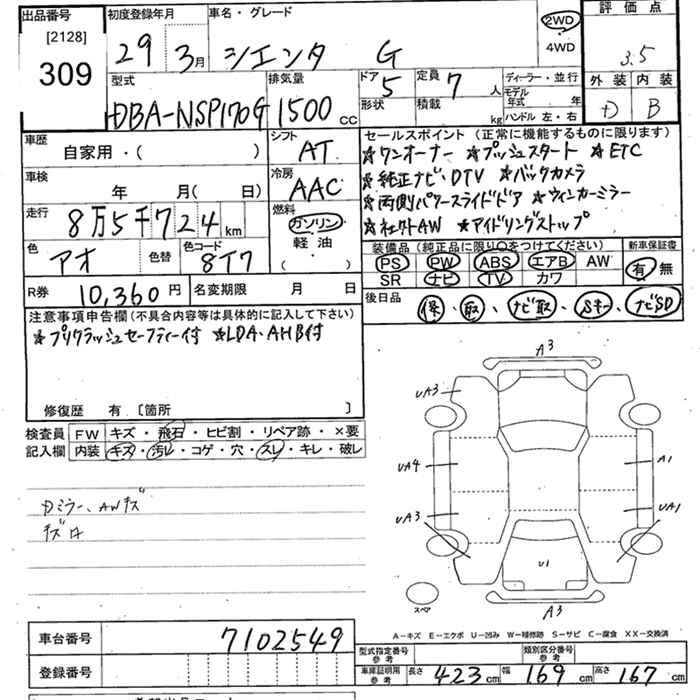 出品番号 初度登録年月 車名・グレード 2WD 評価点
[2128] 29 3月 シエンタ G 4WD 3.5
309
型式 排気量 ドア 5 定員 7 人 ディーラー・並行 外装 内装
DBA-NSP170G 1500 cc 形状 積載 kg モデル年式 年 D B
ハンドル 左・右
車歴 シフト セールスポイント(正常に機能するものに限ります)
自家用・( ) AT ★ワンオーナー ★プッシュスタート ★ETC
車検 冷房 ★純正ナビ・DTV ★バックカメラ
年 月( 日) AAC ★両側パワースライドドア ★ウィンカーミラー
走行 8万5千724km 燃料 ★社外AW ★アイドリングストップ
ガソリン
軽油
( )
色 アオ 色替 色コード 8T7 装備品(純正品に限り○をつけてください) 新車保証書
PS PW ABS エアB AW 有・無
SR ナビ TV カワ
R券 10,360円 名変期限 月 日 後日品 保、取、ナビ取、Sキー、ナビSD
注意事項申告欄(不具合内容等は具体的に記入して下さい)
★プリクラッシュセーフティー付 ★LDA・AHB付
修復歴 有 〔箇所 〕
検査員 FW キズ・飛石・ヒビ割・リペア跡・×要
記入欄 内装 キズ・汚レ・コゲ・穴・スレ・キレ・破レ
Dミラー、AWキズ
キズ
A3
UA3
UA4 A1
UA3 UA1
U1
スペア A3
A-キズ E-エクボ U-凹み W-補修跡 S-サビ C-腐食 XX-交換済
車台番号 7102549 型式指定番号 参考 類別区分番号 参考
登録番号 車庫証明用 参考 長さ 423cm 幅 169cm 高さ 167cm